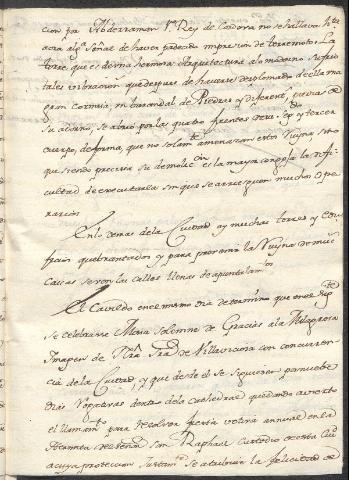 cion por Abderraman 1º Rey de Cordova no se hallava hta
aora algª señal de haver padecido impresion de terremoto. La
torre, que es de una hermosa Arquitectura a lo moderno sufrio
tales vibraciones que despues de haverse desplomado de ella una
gran cornisa, un caudal de Piedras y diferentes piezas de
su adorno, se abrio por las quatro frentes de su segdo y tercer
cuerpo, de forma, que no solamte amenaza en estos Ruyna sino
que siendo precisa su demolicon es la mayor congoja la difi
cultad de executarla sin que se arriesguen muchos Ope
rarios
En lo demas de la Ciudad ay muchas torres y edi
ficios quebrantados y para precaver la Ruyna de muchas
Casas se ven las calles llenas de apuntalamtos
El Cavildo en el mismo dia determino que en el sigte
se celebrasse Missa solemne de Gracias a la Milagrosa
Imagen de Nrã Srã de Villaviciosa con concurren
cia de la Ciudad, y que desde el se siguiesen por nueve
dias rogativas dentro de la Cathedral quedando avierto
el llamamto para resolver fiesta votiva annual en la
Hermita de señor San Raphael Custodio de esta Ciud
a cuya proteccion Juntamte se atribuia la felicidad de